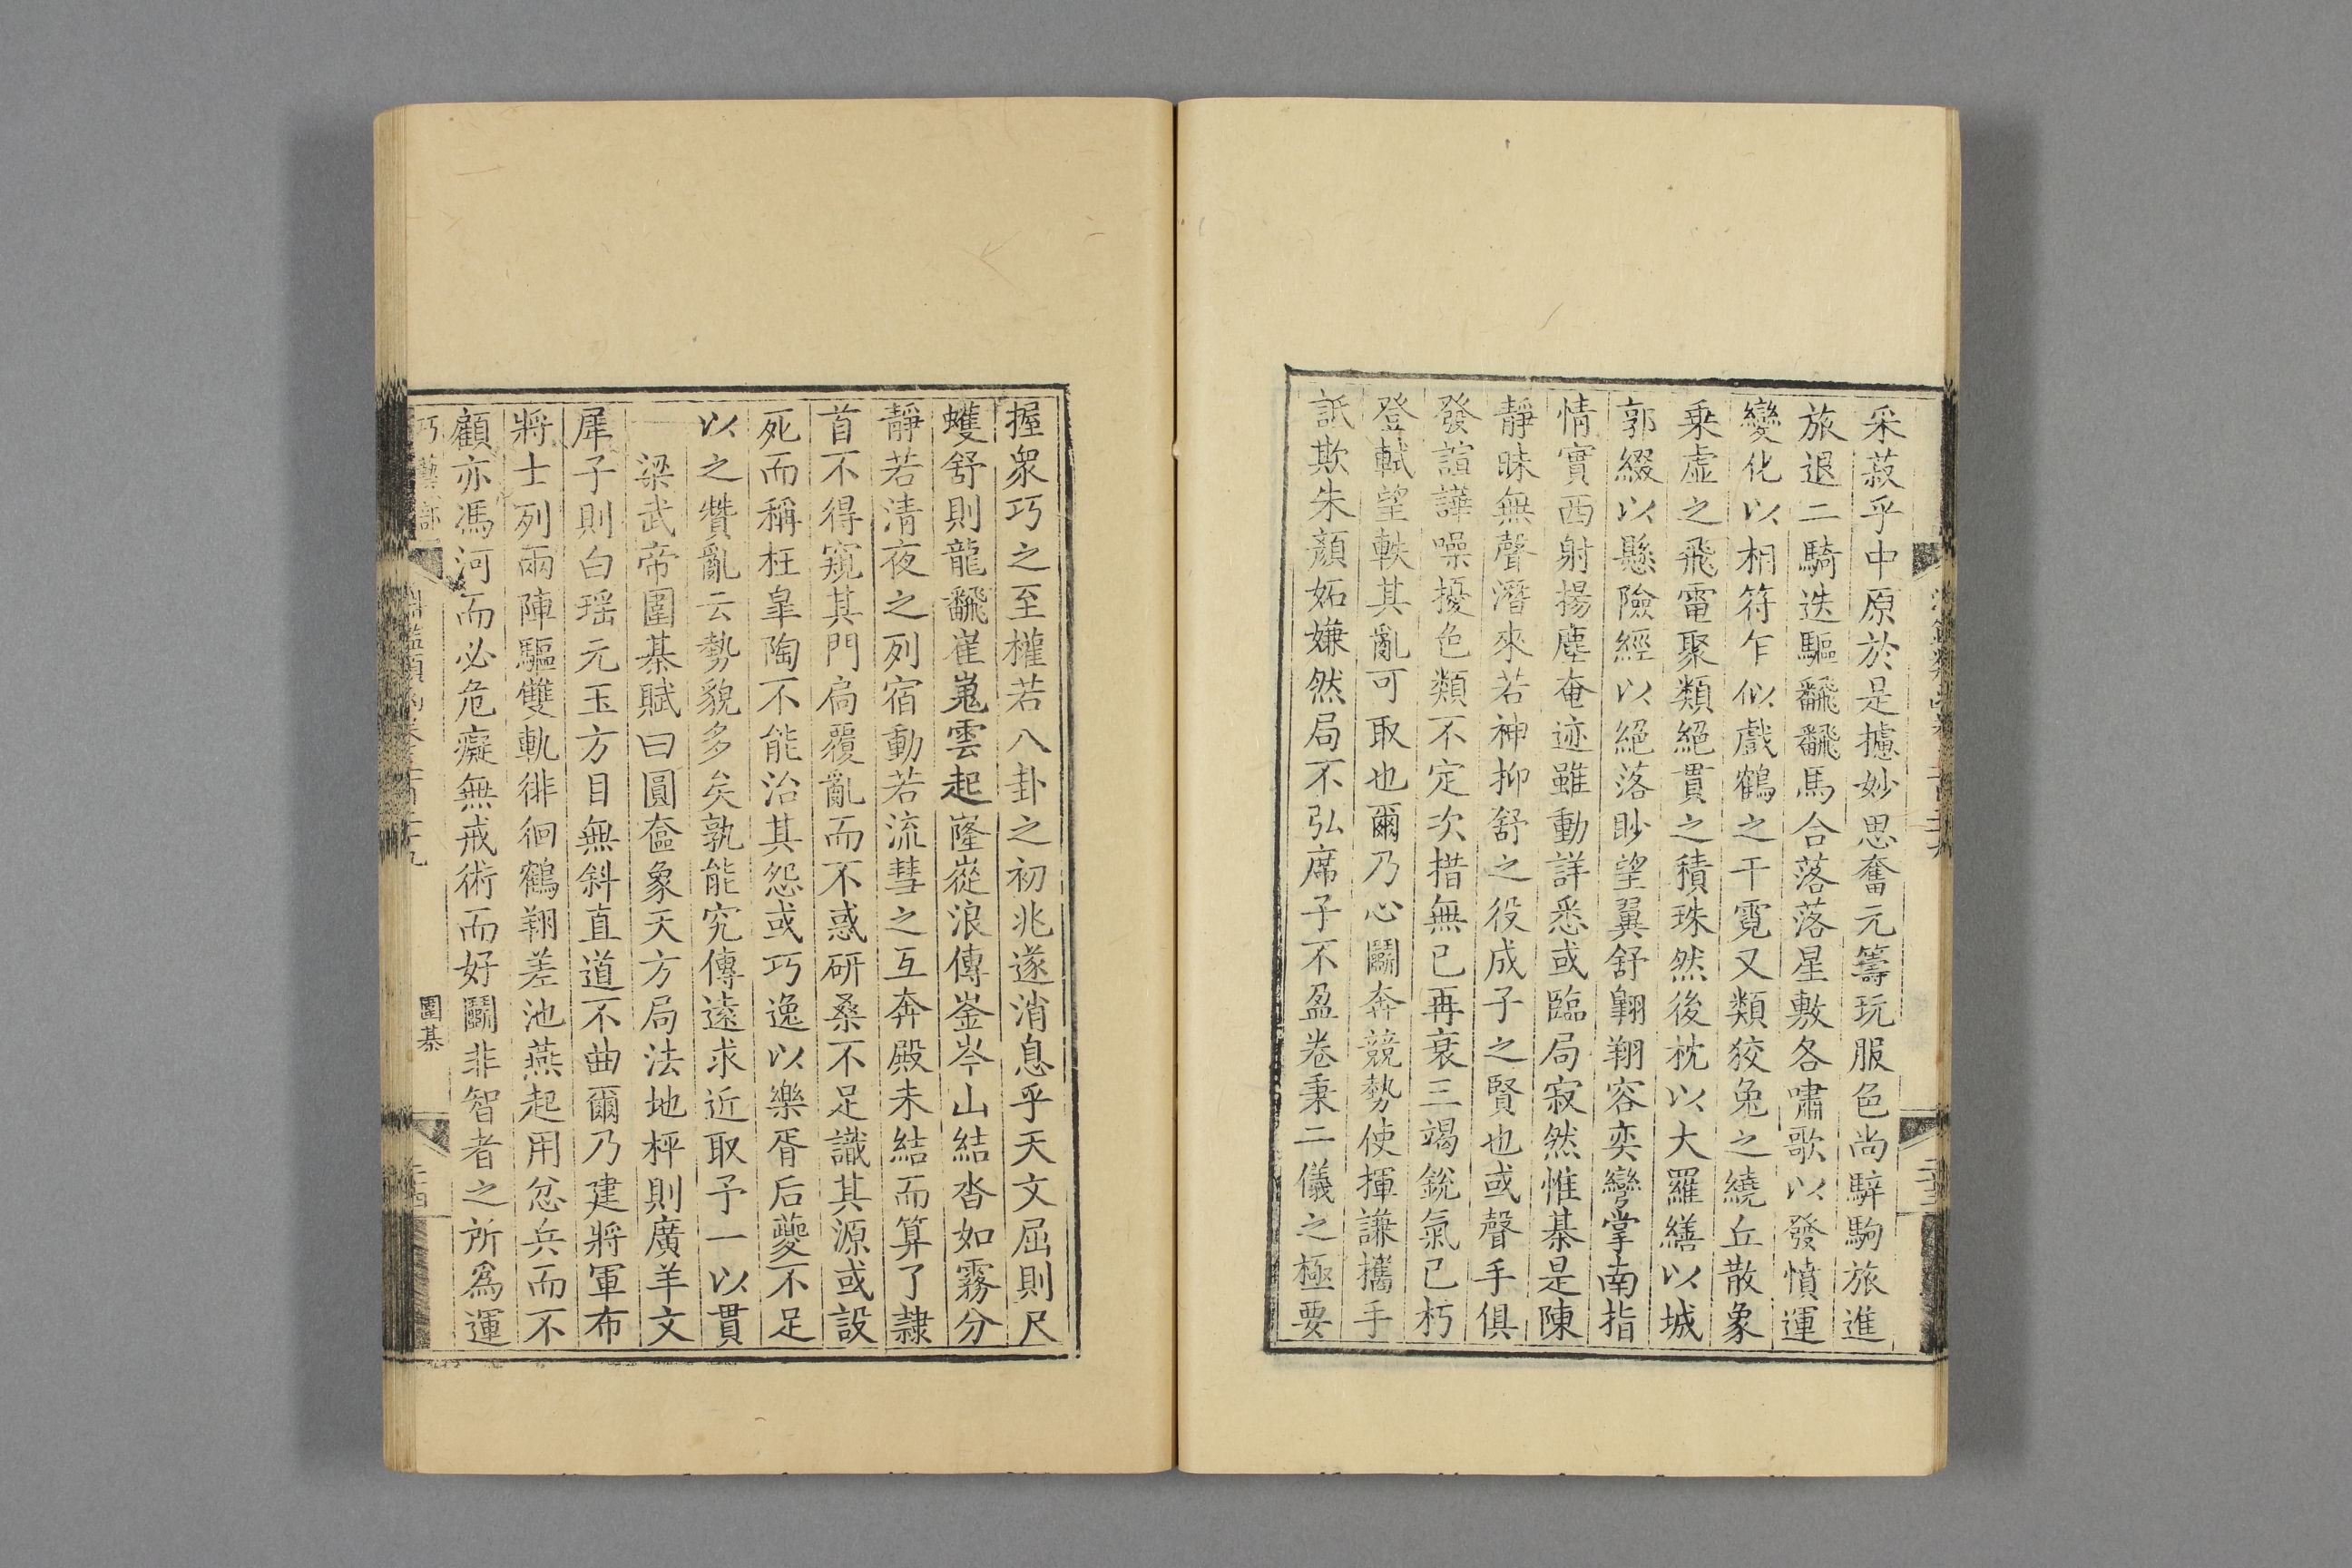 采菽乎中原於是攄妙思奮元籌玩服色尚騂駒旅進
旅退二騎迭驅翻翻馬合落落星敷各嘯歌以發憤運
變化以相符乍似戲鶴之干霓又類狡兔之繞丘散象
乗虛之飛電聚類絕貫之積珠然後枕以大羅繕以城
郭綴以懸險經以絕落眇望翼舒翱翔容奕彎掌南指
情實西射揚塵奄迹雖動詳悉或臨局寂然惟棊是陳
靜昧無聲潛來若神抑舒之役成子之賢也或聲手俱
發諠譁噪擾色類不定次措無已再衰三竭銳氣已朽
登軾望軼其亂可取也爾乃心鬬奔競勢使揮謙攜手
詆欺朱顏妬嫌然局不弘席子不盈卷秉二儀之極要
握衆巧之至權若八卦之初兆遂消息乎天文屈則尺
蠖舒則龍翻崔嵬雲起隆嵸浪傳崟岑山結沓如霧分
靜若清夜之列宿動若流彗之互奔殿未結而算了隷
首不得窺其門扃覆亂而不惑研桑不足識其源或設
死而稱枉臯陶不能治其怨或巧逸以樂胥后夔不足
以之贊亂云勢貌多矣孰能究傳遠求近取予一以貫
梁武帝圍棊賦曰圓奩象天方局法地枰則廣羊文
犀子則白瑶元玉方目無斜直道不曲爾乃建將軍布
將士列兩陣驅雙軌徘徊鶴翔差池燕起用忿兵而不
顧亦馮河而必危癡無戒術而好鬬非智者之所爲運
巧藝部
圍棊